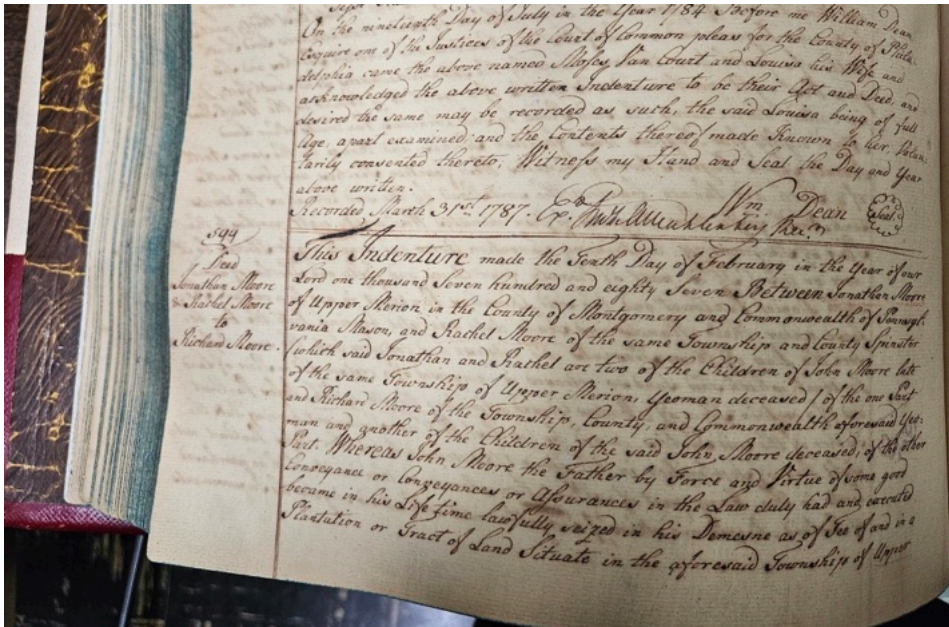 On the nineteenth Day of July in the Year 1784 Before me William Dean
Esquire one of the Justices of the Court of Common pleas for the County of Phila-
delphia came the above named Moses Van Court and Louisa his Wife and
acknowledged the above written Indenture to be their Act and Deed, and
desired the same may be recorded as such, the said Louisa being of full
Age, apart examined and the Contents thereof made Known to her, Volun-
tarily consented thereto, Witness my Hand and Seal the Day and Year
above written.
Wm Dean Seal
Recorded March 31st 1787.
594
Deed
Jonathan Moore
& Rachel Moore
to
Richard Moore.
This Indenture made the Tenth Day of February in the Year of our
Lord one thousand Seven hundred and eighty Seven Between Jonathan Moore
of Upper Merion in the County of Montgomery and Commonwealth of Pennsyl-
vania Mason, and Rachel Moore of the same Township and County Spinster
(which said Jonathan and Rachel are two of the Children of John Moore late
of the same Township of Upper Merion, Yeoman deceased) of the one Part
and Richard Moore of the Township, County, and Commonwealth aforesaid Yeo-
man and another of the Children of the said John Moore deceased, of the other
Part. Whereas John Moore the Father by Force and Virtue of some good
Conveyance or Conveyances or Assurances in the Law duly had and executed
became in his Life time lawfully seized in his Demesne as of Fee of and in a
Plantation or Tract of Land Situate in the aforesaid Township of Upper